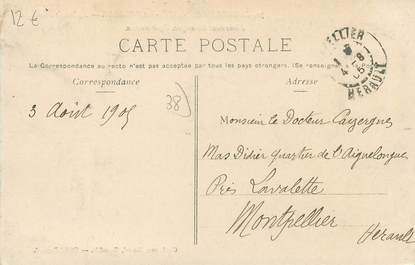 12 €
CARTE POSTALE
La Correspondance au recto n'est pas acceptée par tous les pays étrangers. (Se renseigner
Correspondance
Adresse
3 Août 1905
38)
Monsieur le Docteur Cazergues
Mas Didier quartier de l'Aiguelongue
Près Lavalette
Montpellier
Herault
ELLIER
4 - 8
05
HERAULT